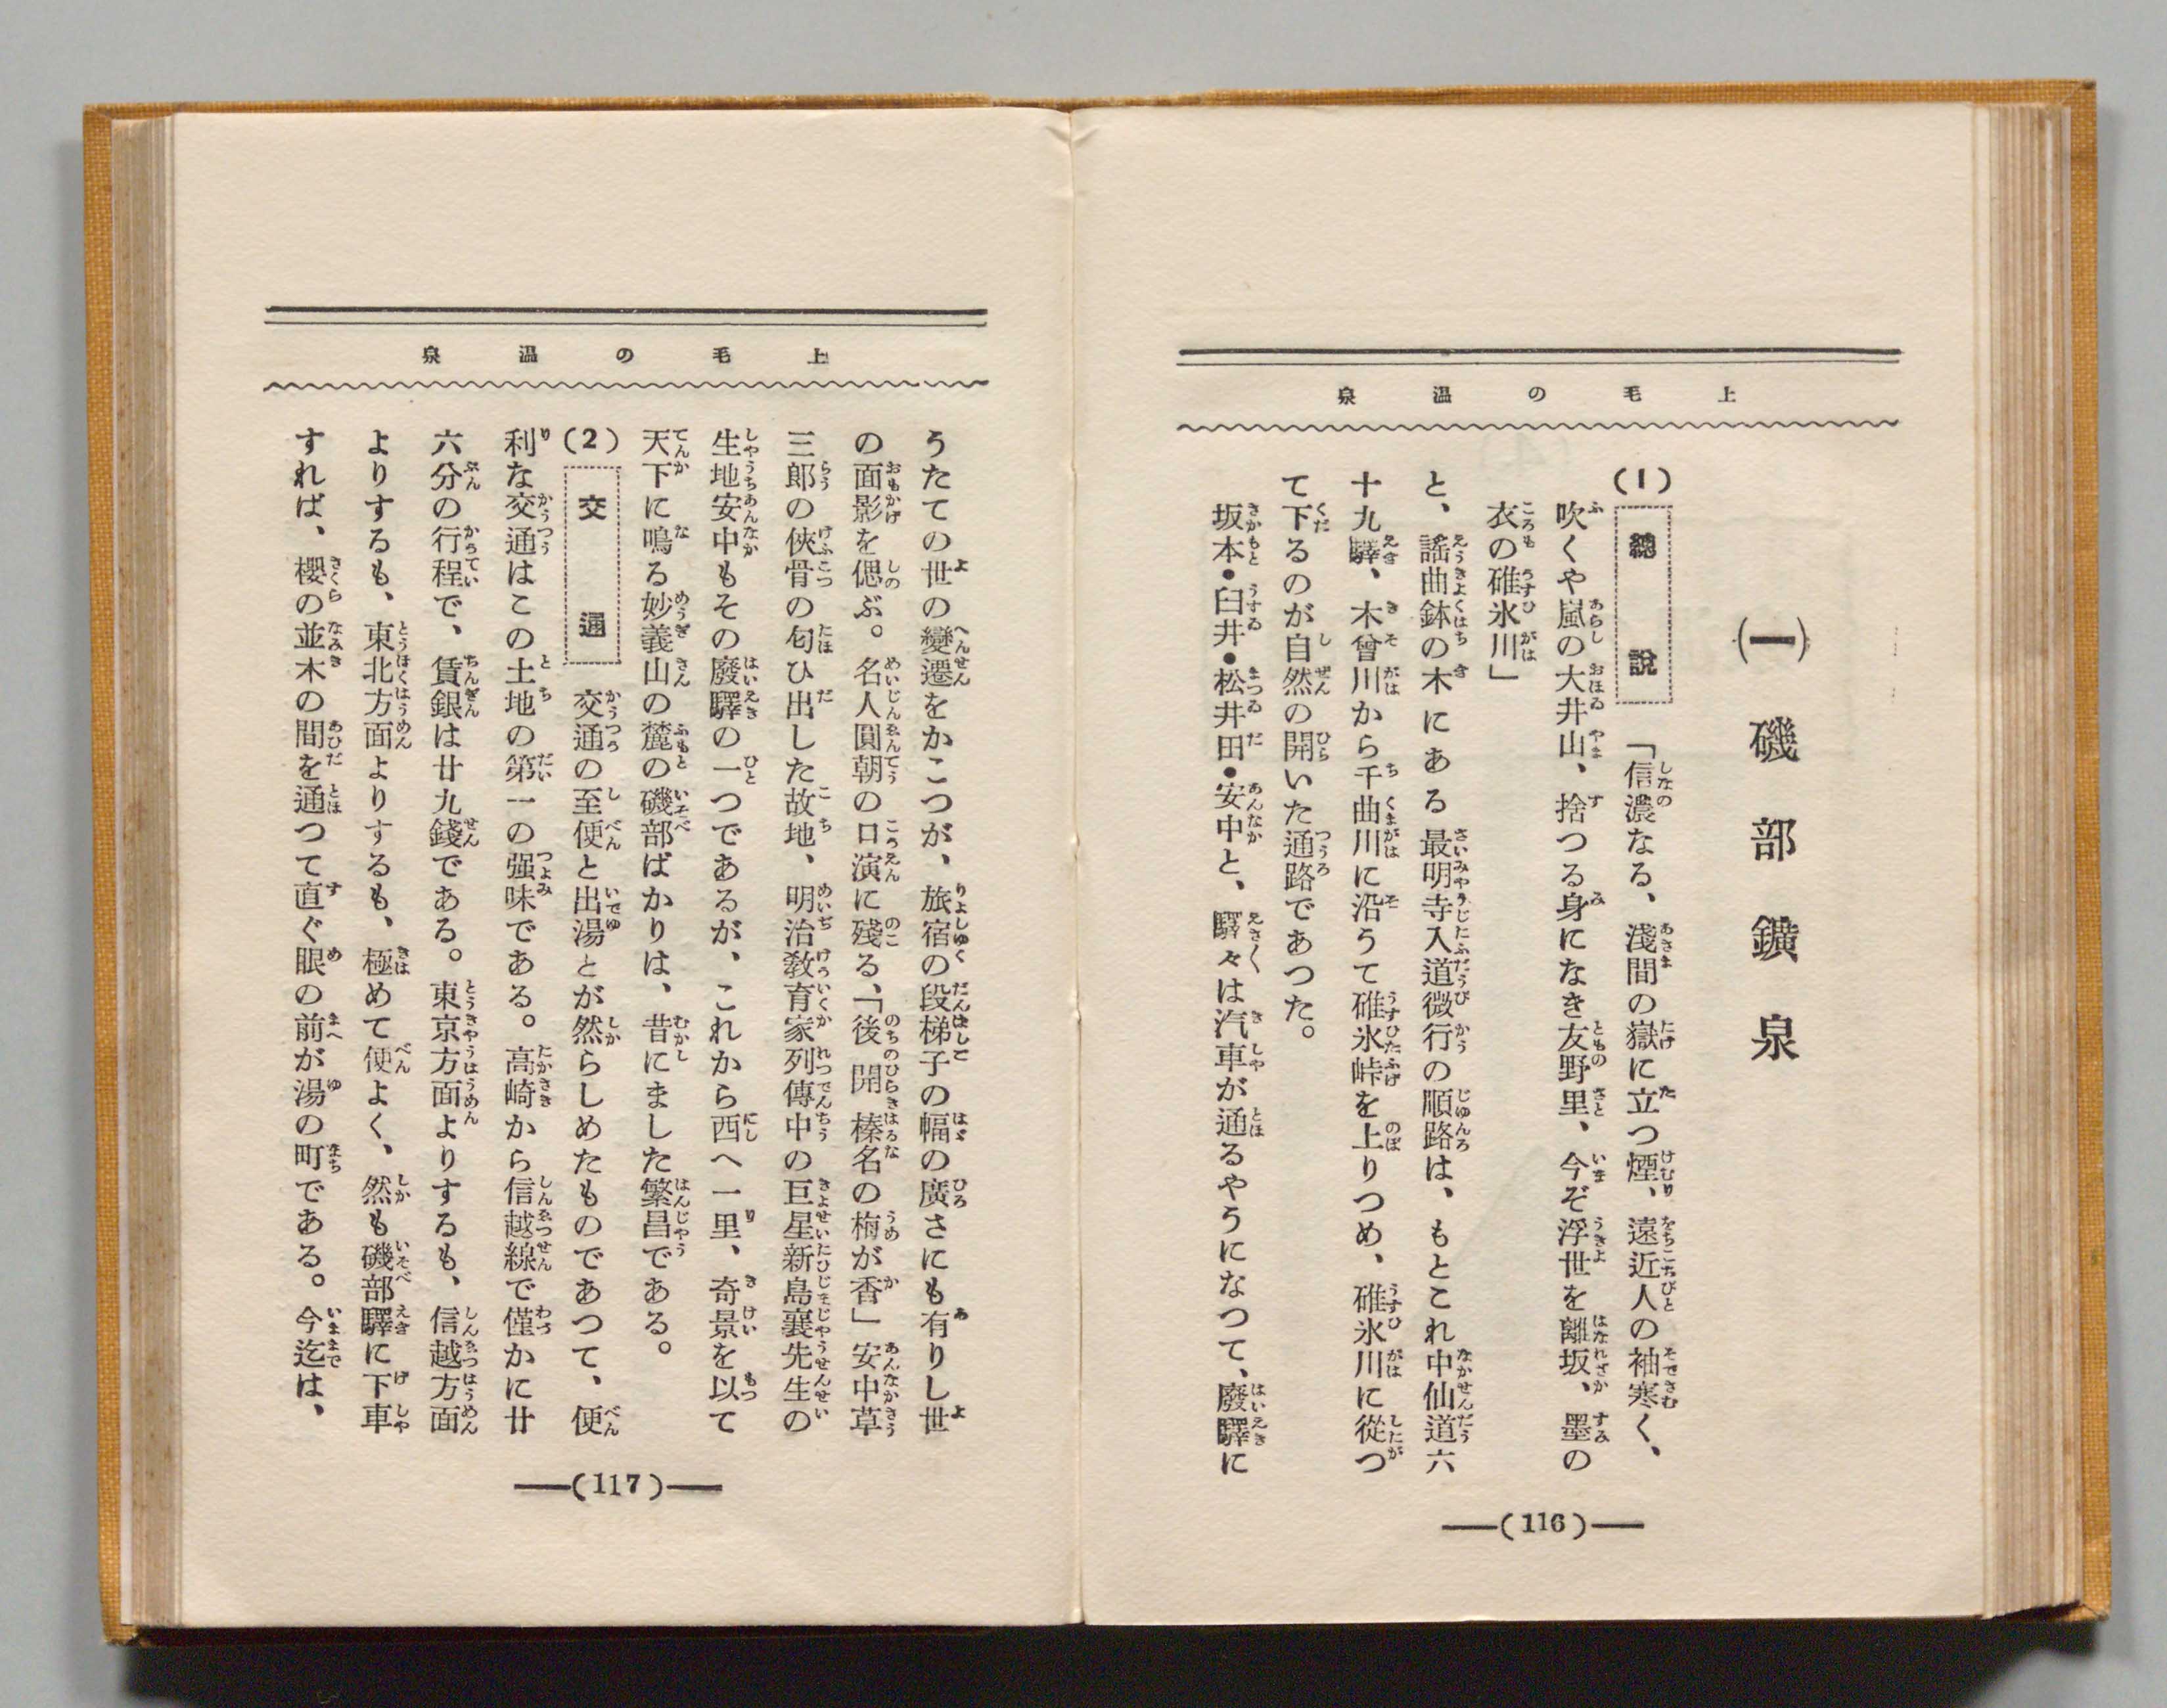 上毛の温泉
(一) 磯部鑛泉
(1) 總說 「信濃なる、淺間の嶽に立つ煙、遠近人の袖寒く、
吹くや嵐の大井山、捨つる身になき友野里、今ぞ浮世を離坂、墨の
衣の碓氷川」
と、謠曲鉢の木にある最明寺入道微行の順路は、もとこれ中仙道六
十九驛、木曾川から千曲川に沿うて碓氷峠を上りつめ、碓氷川に從つ
て下るのが自然の開いた通路であつた。
坂本•臼井•松井田•安中と、驛々は汽車が通るやうになつて、廢驛に
(116)
上毛の温泉
うたての世の變遷をかこつが、旅宿の段梯子の幅の廣さにも有りし世
の面影を偲ぶ。名人圓朝の口演に殘る、「後開榛名の梅が香」安中草
三郎の俠骨の匂ひ出した故地、明治教育家列傳中の巨星新島襄先生の
生地安中もその廢驛の一つであるが、これから西へ一里、奇景を以て
天下に鳴る妙義山の麓の磯部ばかりは、昔にました繁昌である。
(2) 交通 交通の至便と出湯とが然らしめたものであつて、便
利な交通はこの土地の第一の强味である。高崎から信越線で僅かに廿
六分の行程で、賃銀は廿九錢である。東京方面よりするも、信越方面
よりするも、東北方面よりするも、極めて便よく、然も磯部驛に下車
すれば、櫻の並木の間を通つて直ぐ眼の前が湯の町である。今迄は、
(117)